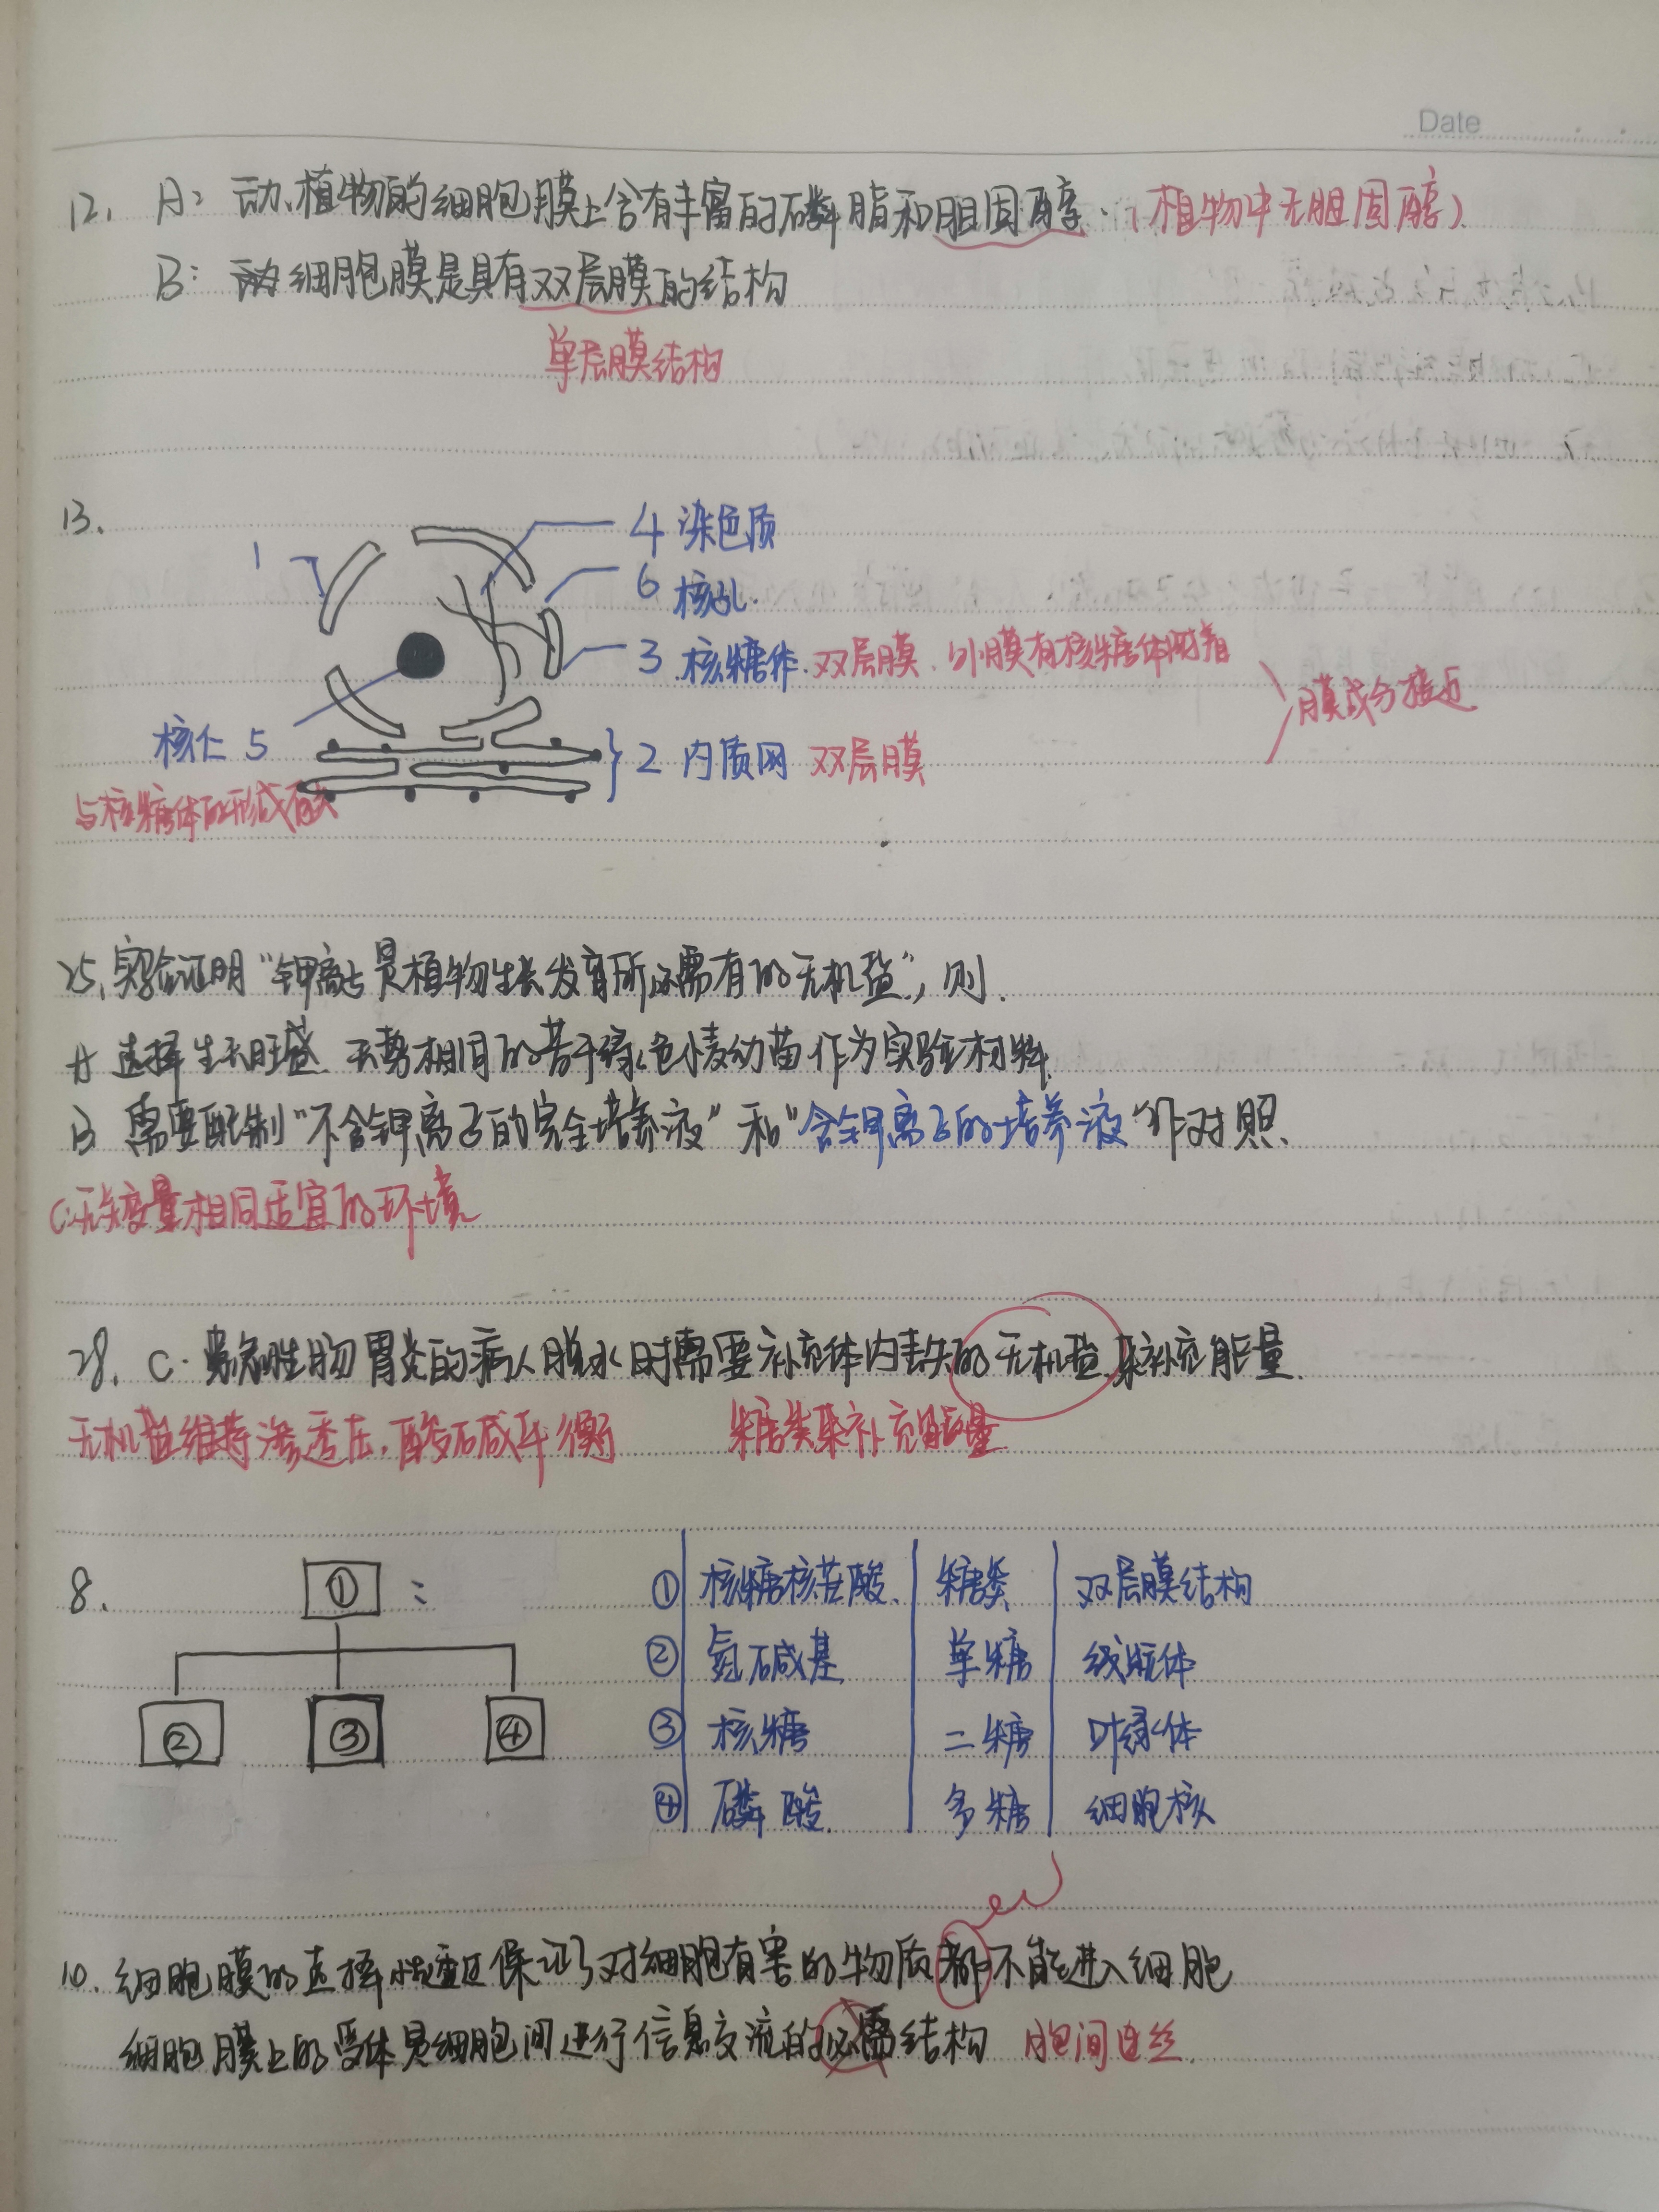 Date
12. A: 动、植物的细胞膜上含有丰富的磷脂和胆固醇. (植物中无胆固醇)
B: 细胞膜是具有双层膜的结构
单层膜结构
13.
1
4 染色质
6 核孔.
3 核糖体. 双层膜、外膜有核糖体附着
膜成分接近
核仁 5
2 内质网 双层膜
与核糖体的形成有关
25. 实验证明“钾离子是植物生长发育所必需有的无机盐”, 则.
A 选择生长旺盛、长势相同的若干绿色小麦幼苗作为实验材料.
B 需要配制“不含钾离子的完全培养液”和“含钾离子的培养液”作对照.
C: 无关变量相同适宜的环境
28. C. 患急性肠胃炎的病人脱水时需要补充体内丢失的无机盐来补充能量.
无机盐维持渗透压, 酸碱平衡 糖类来补充能量
8. ① :
② ③ ④
① 核糖核苷酸. 糖类 双层膜结构
② 氮碱基 单糖 线粒体
③ 核糖 二糖 叶绿体
④ 磷酸. 多糖 细胞核
10. 细胞膜的选择性透过保证了对细胞有害的物质都不能进入细胞
细胞膜上的受体是细胞间进行信息交流的必需结构 胞间连丝.